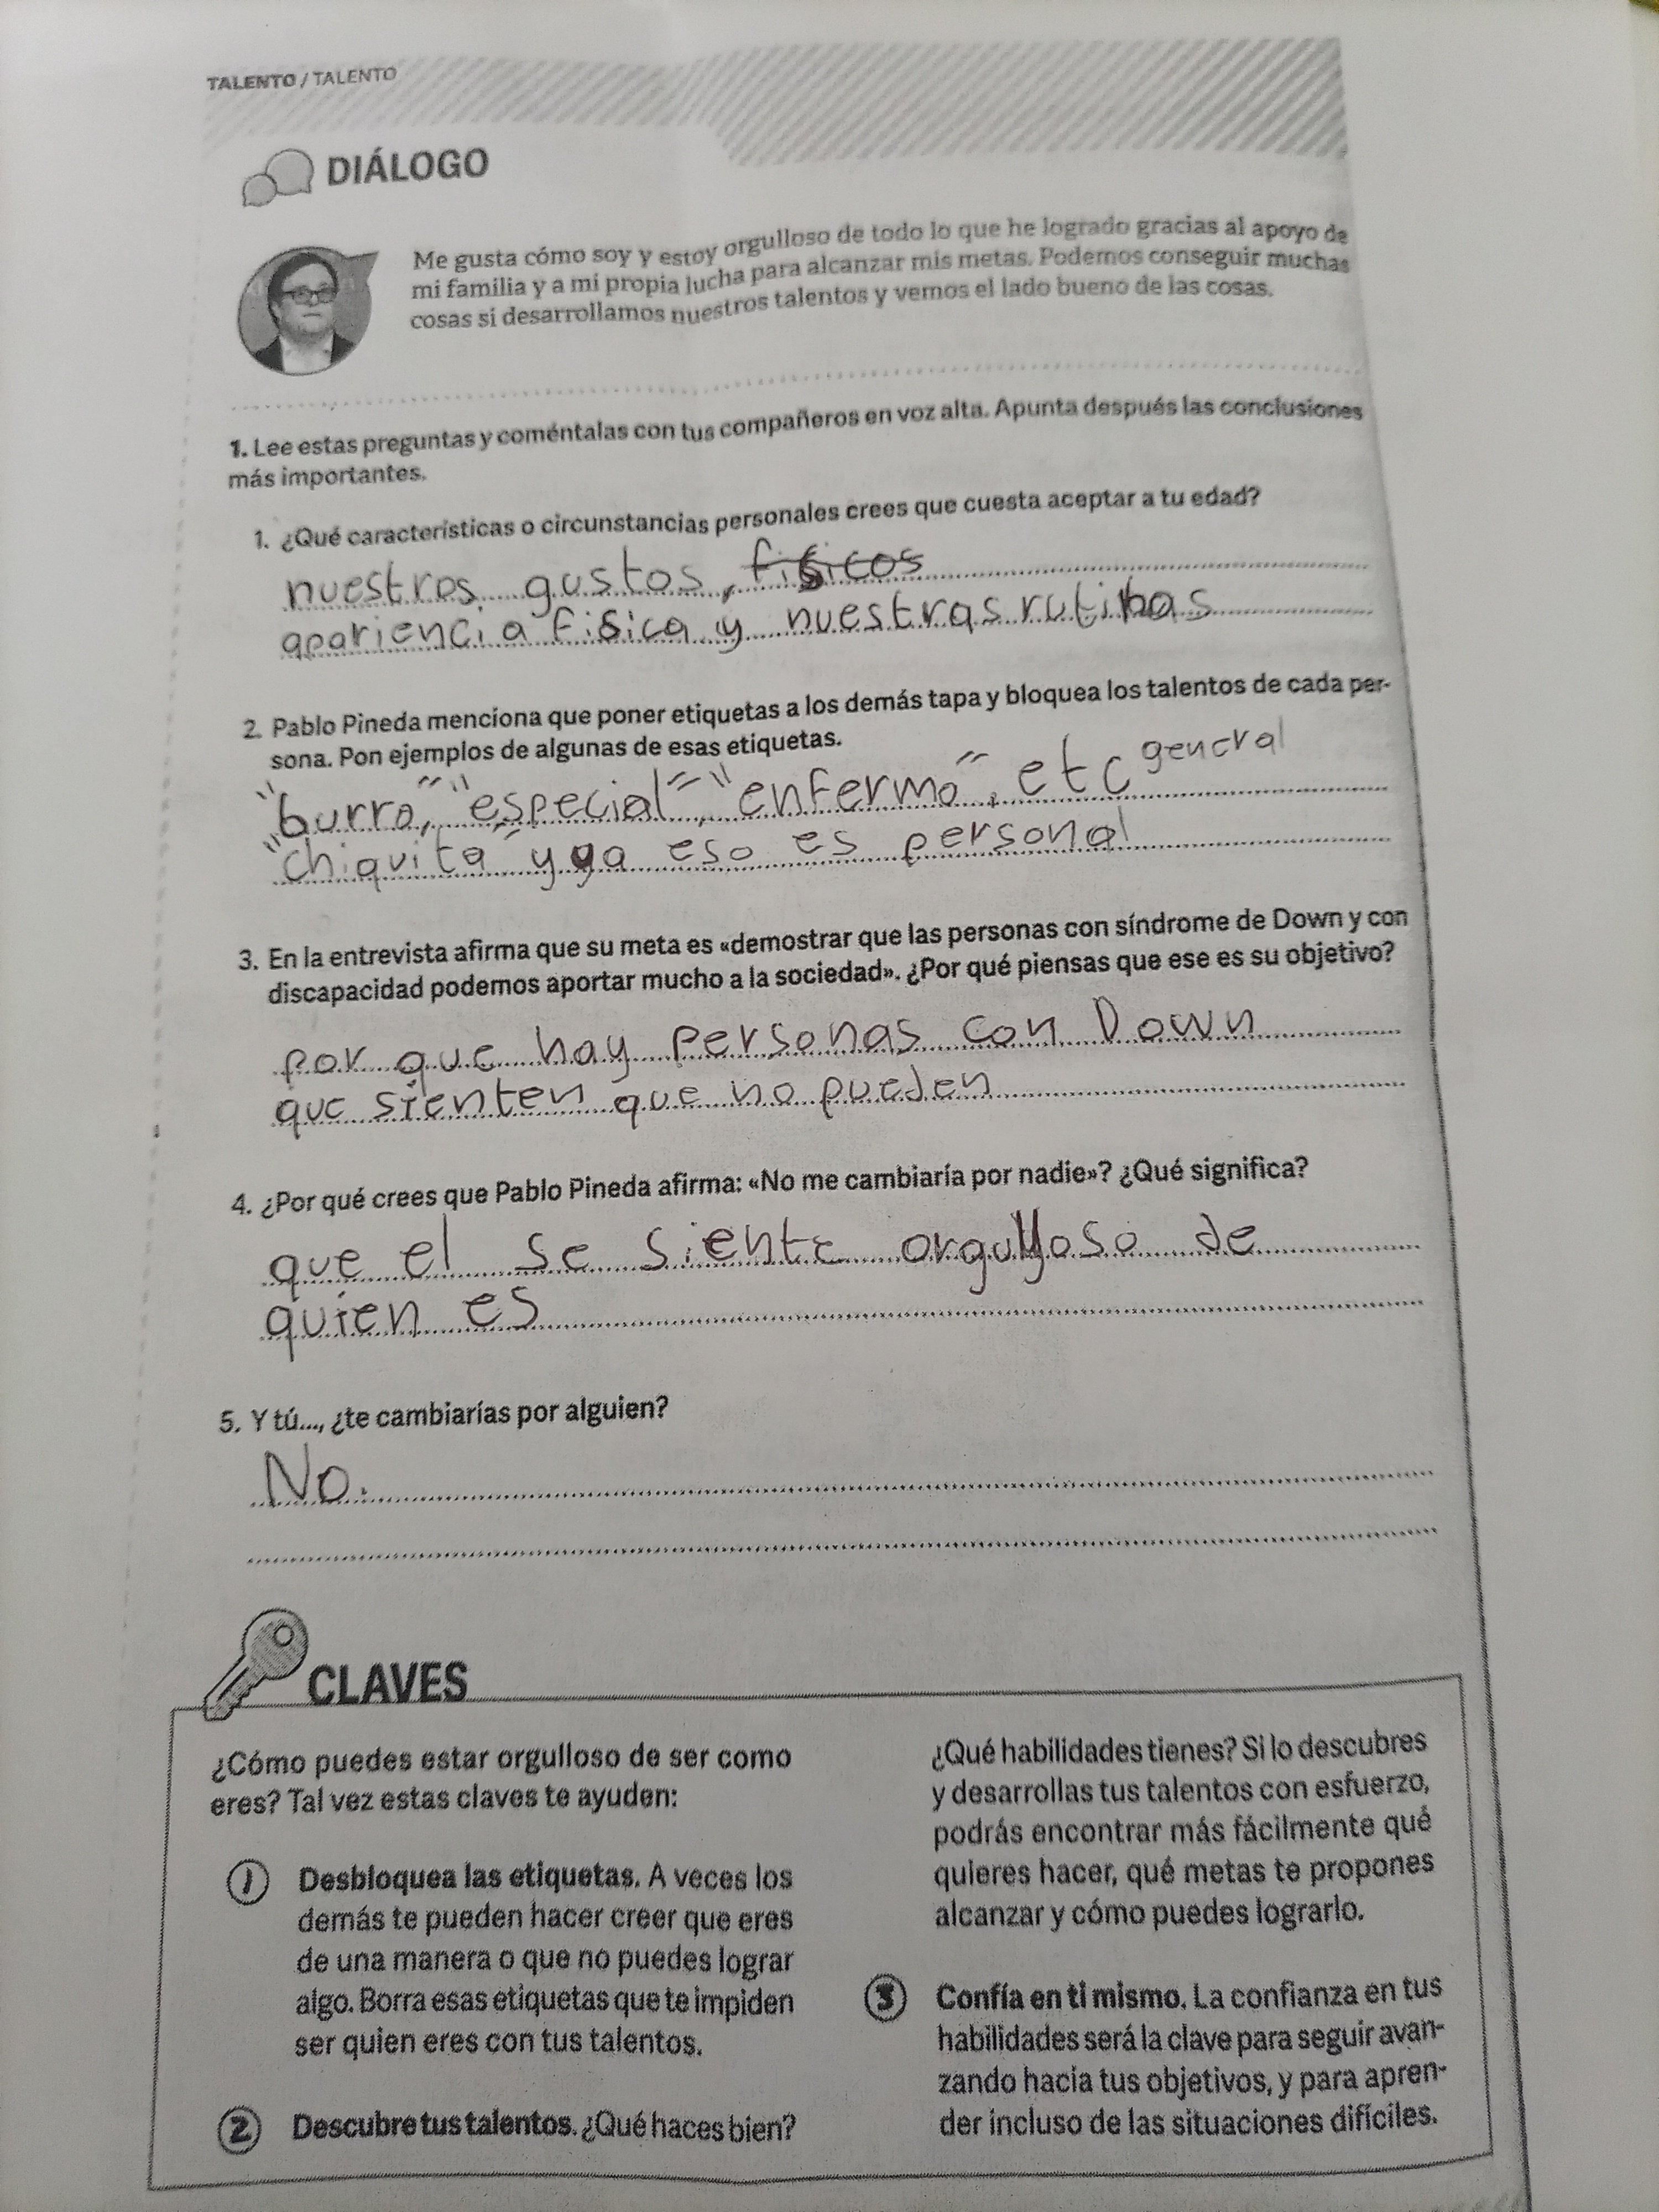 TALENTO / TALENTO
DIÁLOGO
Me gusta cómo soy y estoy orgulloso de todo lo que he logrado gracias al apoyo de
mi familia y a mi propia lucha para alcanzar mis metas. Podemos conseguir muchas
cosas si desarrollamos nuestros talentos y vemos el lado bueno de las cosas.
1. Lee estas preguntas y coméntalas con tus compañeros en voz alta. Apunta después las conclusiones
más importantes.
1. ¿Qué características o circunstancias personales crees que cuesta aceptar a tu edad?
nuestros gustos, fisicos
apariencia fisica y nuestras rutinas
2. Pablo Pineda menciona que poner etiquetas a los demás tapa y bloquea los talentos de cada per-
sona. Pon ejemplos de algunas de esas etiquetas.
"burro", "especial", "enfermo", etc general
"chiquita" y ya eso es personal
3. En la entrevista afirma que su meta es «demostrar que las personas con síndrome de Down y con
discapacidad podemos aportar mucho a la sociedad». ¿Por qué piensas que ese es su objetivo?
por que hay personas con Down
que sienten que no pueden
4. ¿Por qué crees que Pablo Pineda afirma: «No me cambiaría por nadie»? ¿Qué significa?
que el se siente orgulloso de
quien es
5. Y tú..., ¿te cambiarías por alguien?
No.
CLAVES
¿Cómo puedes estar orgulloso de ser como
eres? Tal vez estas claves te ayuden:
1 Desbloquea las etiquetas. A veces los
demás te pueden hacer creer que eres
de una manera o que no puedes lograr
algo. Borra esas etiquetas que te impiden
ser quien eres con tus talentos.
2 Descubre tus talentos. ¿Qué haces bien?
¿Qué habilidades tienes? Si lo descubres
y desarrollas tus talentos con esfuerzo,
podrás encontrar más fácilmente qué
quieres hacer, qué metas te propones
alcanzar y cómo puedes lograrlo.
3 Confía en ti mismo. La confianza en tus
habilidades será la clave para seguir avan-
zando hacia tus objetivos, y para apren-
der incluso de las situaciones difíciles.